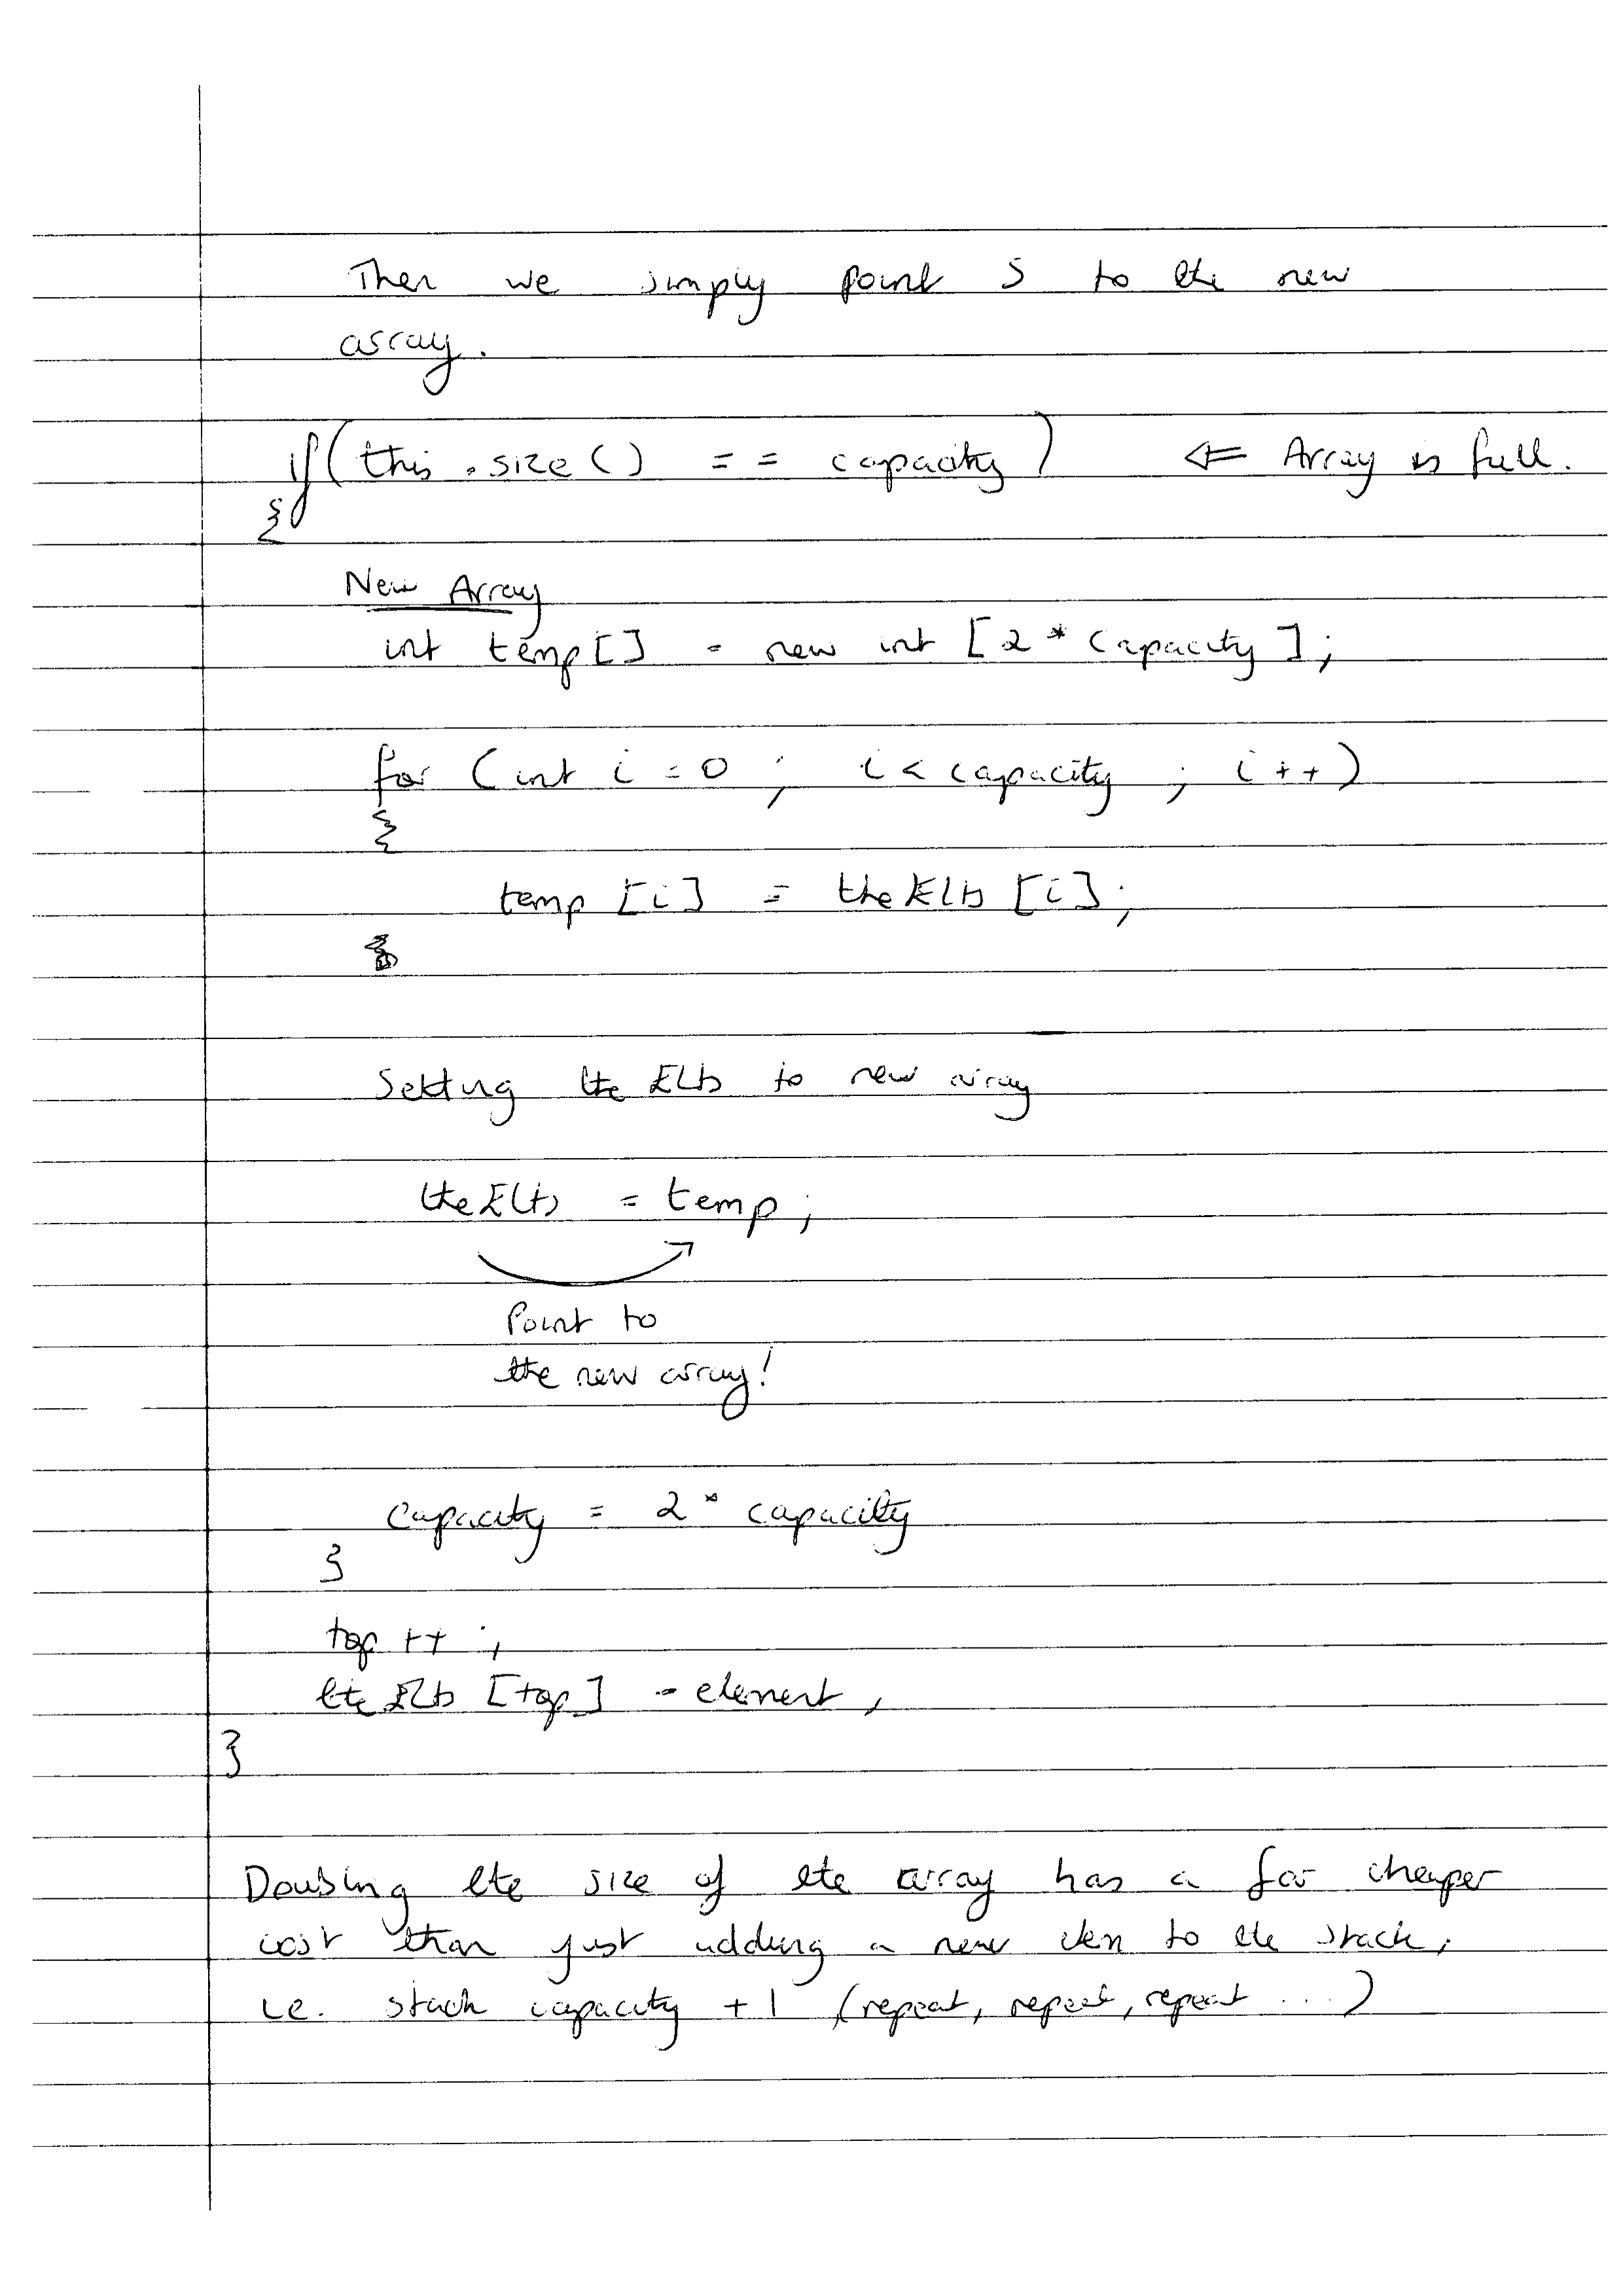 Then we simply point S to the new
array.
if(this.size() == capacity) ⇐ Array is full.
{
New Array
int temp[] = new int [2 * capacity];
for (int i = 0 ; i < capacity ; i++)
{
temp [i] = theElts [i];
}
Setting theElts to new array
theElts = temp;
Point to
the new array!
capacity = 2 * capacity
}
top ++;
theElts [top] = element;
}
Doubling the size of the array has a far cheaper
cost than just adding a new item to the stack;
i.e. stack capacity + 1 (repeat, repeat, repeat ...)